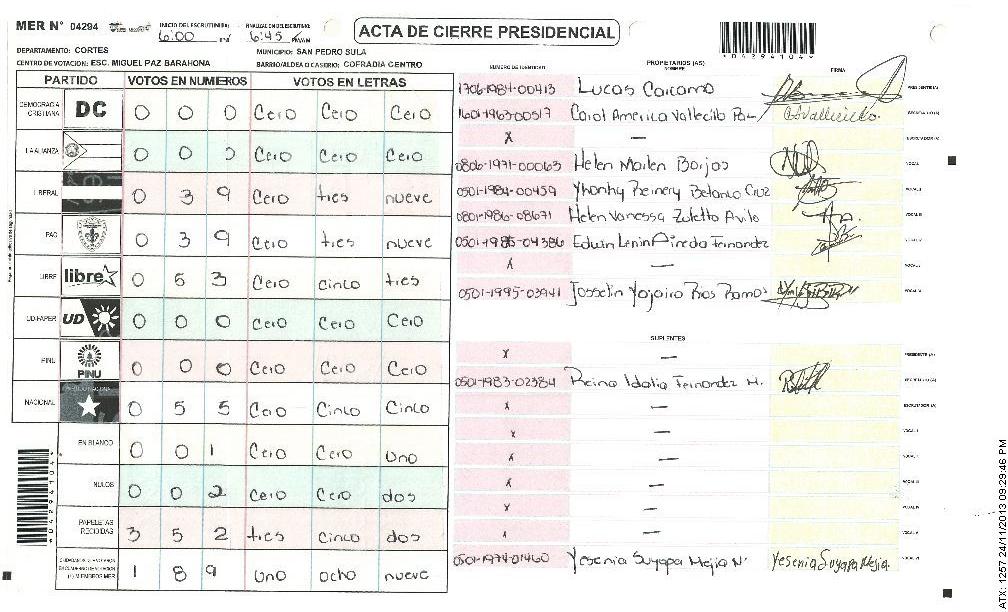 MER N° 04294
INICIO DEL ESCRUTINIO 6:00 PM
FINALIZACION DEL ESCRUTINIO 6:45 PM/AM
ACTA DE CIERRE PRESIDENCIAL
*04294104*
DEPARTAMENTO: CORTES
MUNICIPIO: SAN PEDRO SULA
CENTRO DE VOTACION: ESC. MIGUEL PAZ BARAHONA
BARRIO/ALDEA O CASERIO: COFRADIA CENTRO
PARTIDO VOTOS EN NUMEROS VOTOS EN LETRAS
DEMOCRACIA CRISTIANA DC 0 0 0 Cero Cero Cero
LA ALIANZA 0 0 0 Cero Cero Cero
LIBERAL 0 3 9 Cero tres nueve
PAC 0 3 9 Cero tres nueve
LIBRE libre 0 5 3 Cero cinco tres
UD-FAPER UD 0 0 0 Cero Cero Cero
PINU PINU 0 0 0 Cero Cero Cero
NACIONAL 0 5 5 Cero Cinco Cinco
EN BLANCO 0 0 1 Cero Cero Uno
NULOS 0 0 2 Cero Cero dos
PAPELETAS RECIBIDAS 3 5 2 tres cinco dos
(+) MIEMBROS MER 1 8 9 uno ocho nueve
NUMERO DE IDENTIDAD PROPIETARIOS (AS) NOMBRE FIRMA
1706-1984-00413 Lucas Carcamo PRESIDENTE (A)
1601-1963-00517 Carol America Vallecillo SECRETARIO (A)
X — ESCRUTADOR (A)
0806-1971-00063 Helen Marlen Borjas VOCAL I
0501-1984-00459 Yhonhy Reinery Betanco Cruz VOCAL II
0801-1986-08671 Helen Vanessa Zuletto Avila VOCAL III
0501-1985-04386 Edwin Lenin Pineda Fernandez VOCAL IV
X — VOCAL V
0501-1995-03941 Josselin Yojaira Rios Ramos VOCAL VI
SUPLENTES
X — PRESIDENTE (A)
0501-1983-02384 Reina Idalia Fernandez M. SECRETARIO (A)
X — ESCRUTADOR (A)
X — VOCAL I
X — VOCAL II
X — VOCAL III
X — VOCAL IV
X — VOCAL V
0501-1974-01460 Yesenia Suyapa Mejia N. Yesenia Suyapa Mejia. VOCAL VI
*04294104*
ATX: 1257 24/11/2013 09:29:46 PM